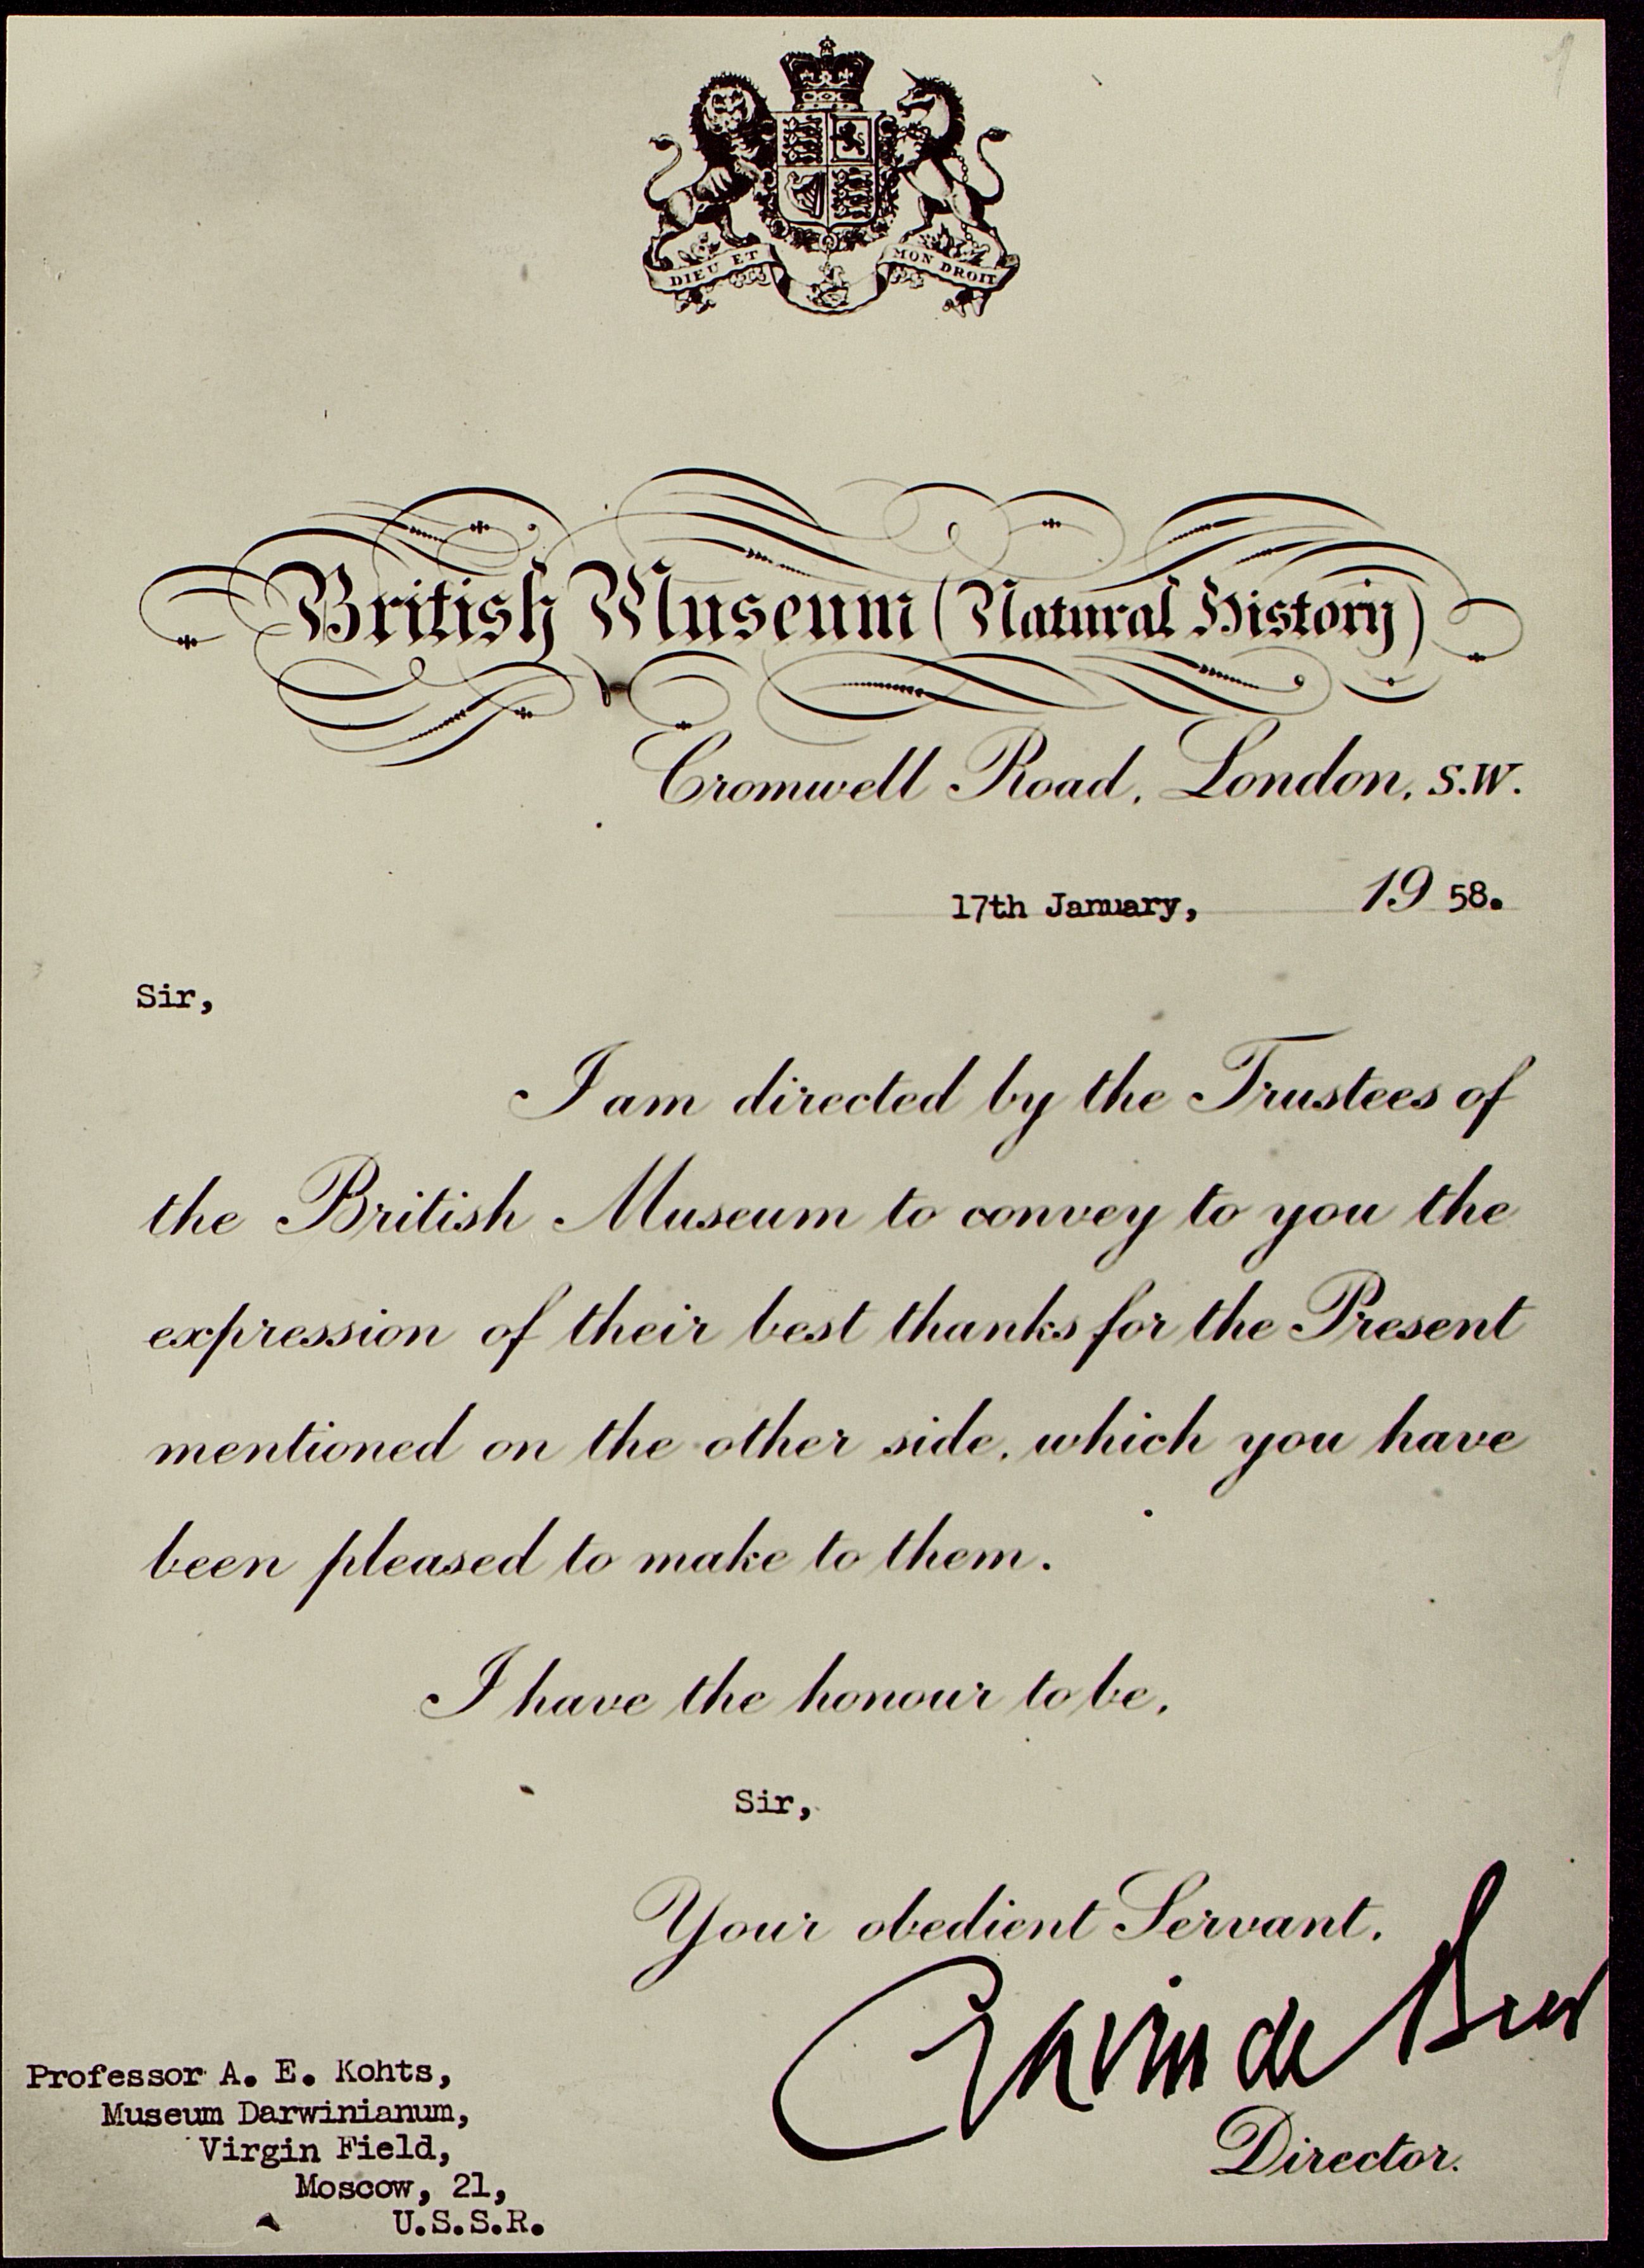 1
DIEU ET MON DROIT
British Museum (Natural History)
Cromwell Road, London, S.W.
17th January, 19 58.
Sir,
I am directed by the Trustees of
the British Museum to convey to you the
expression of their best thanks for the Present
mentioned on the other side, which you have
been pleased to make to them.
I have the honour to be,
Sir,
Your obedient Servant,
Gavin de Beer
Director.
Professor A. E. Kohts,
Museum Darwinianum,
Virgin Field,
Moscow, 21,
U.S.S.R.